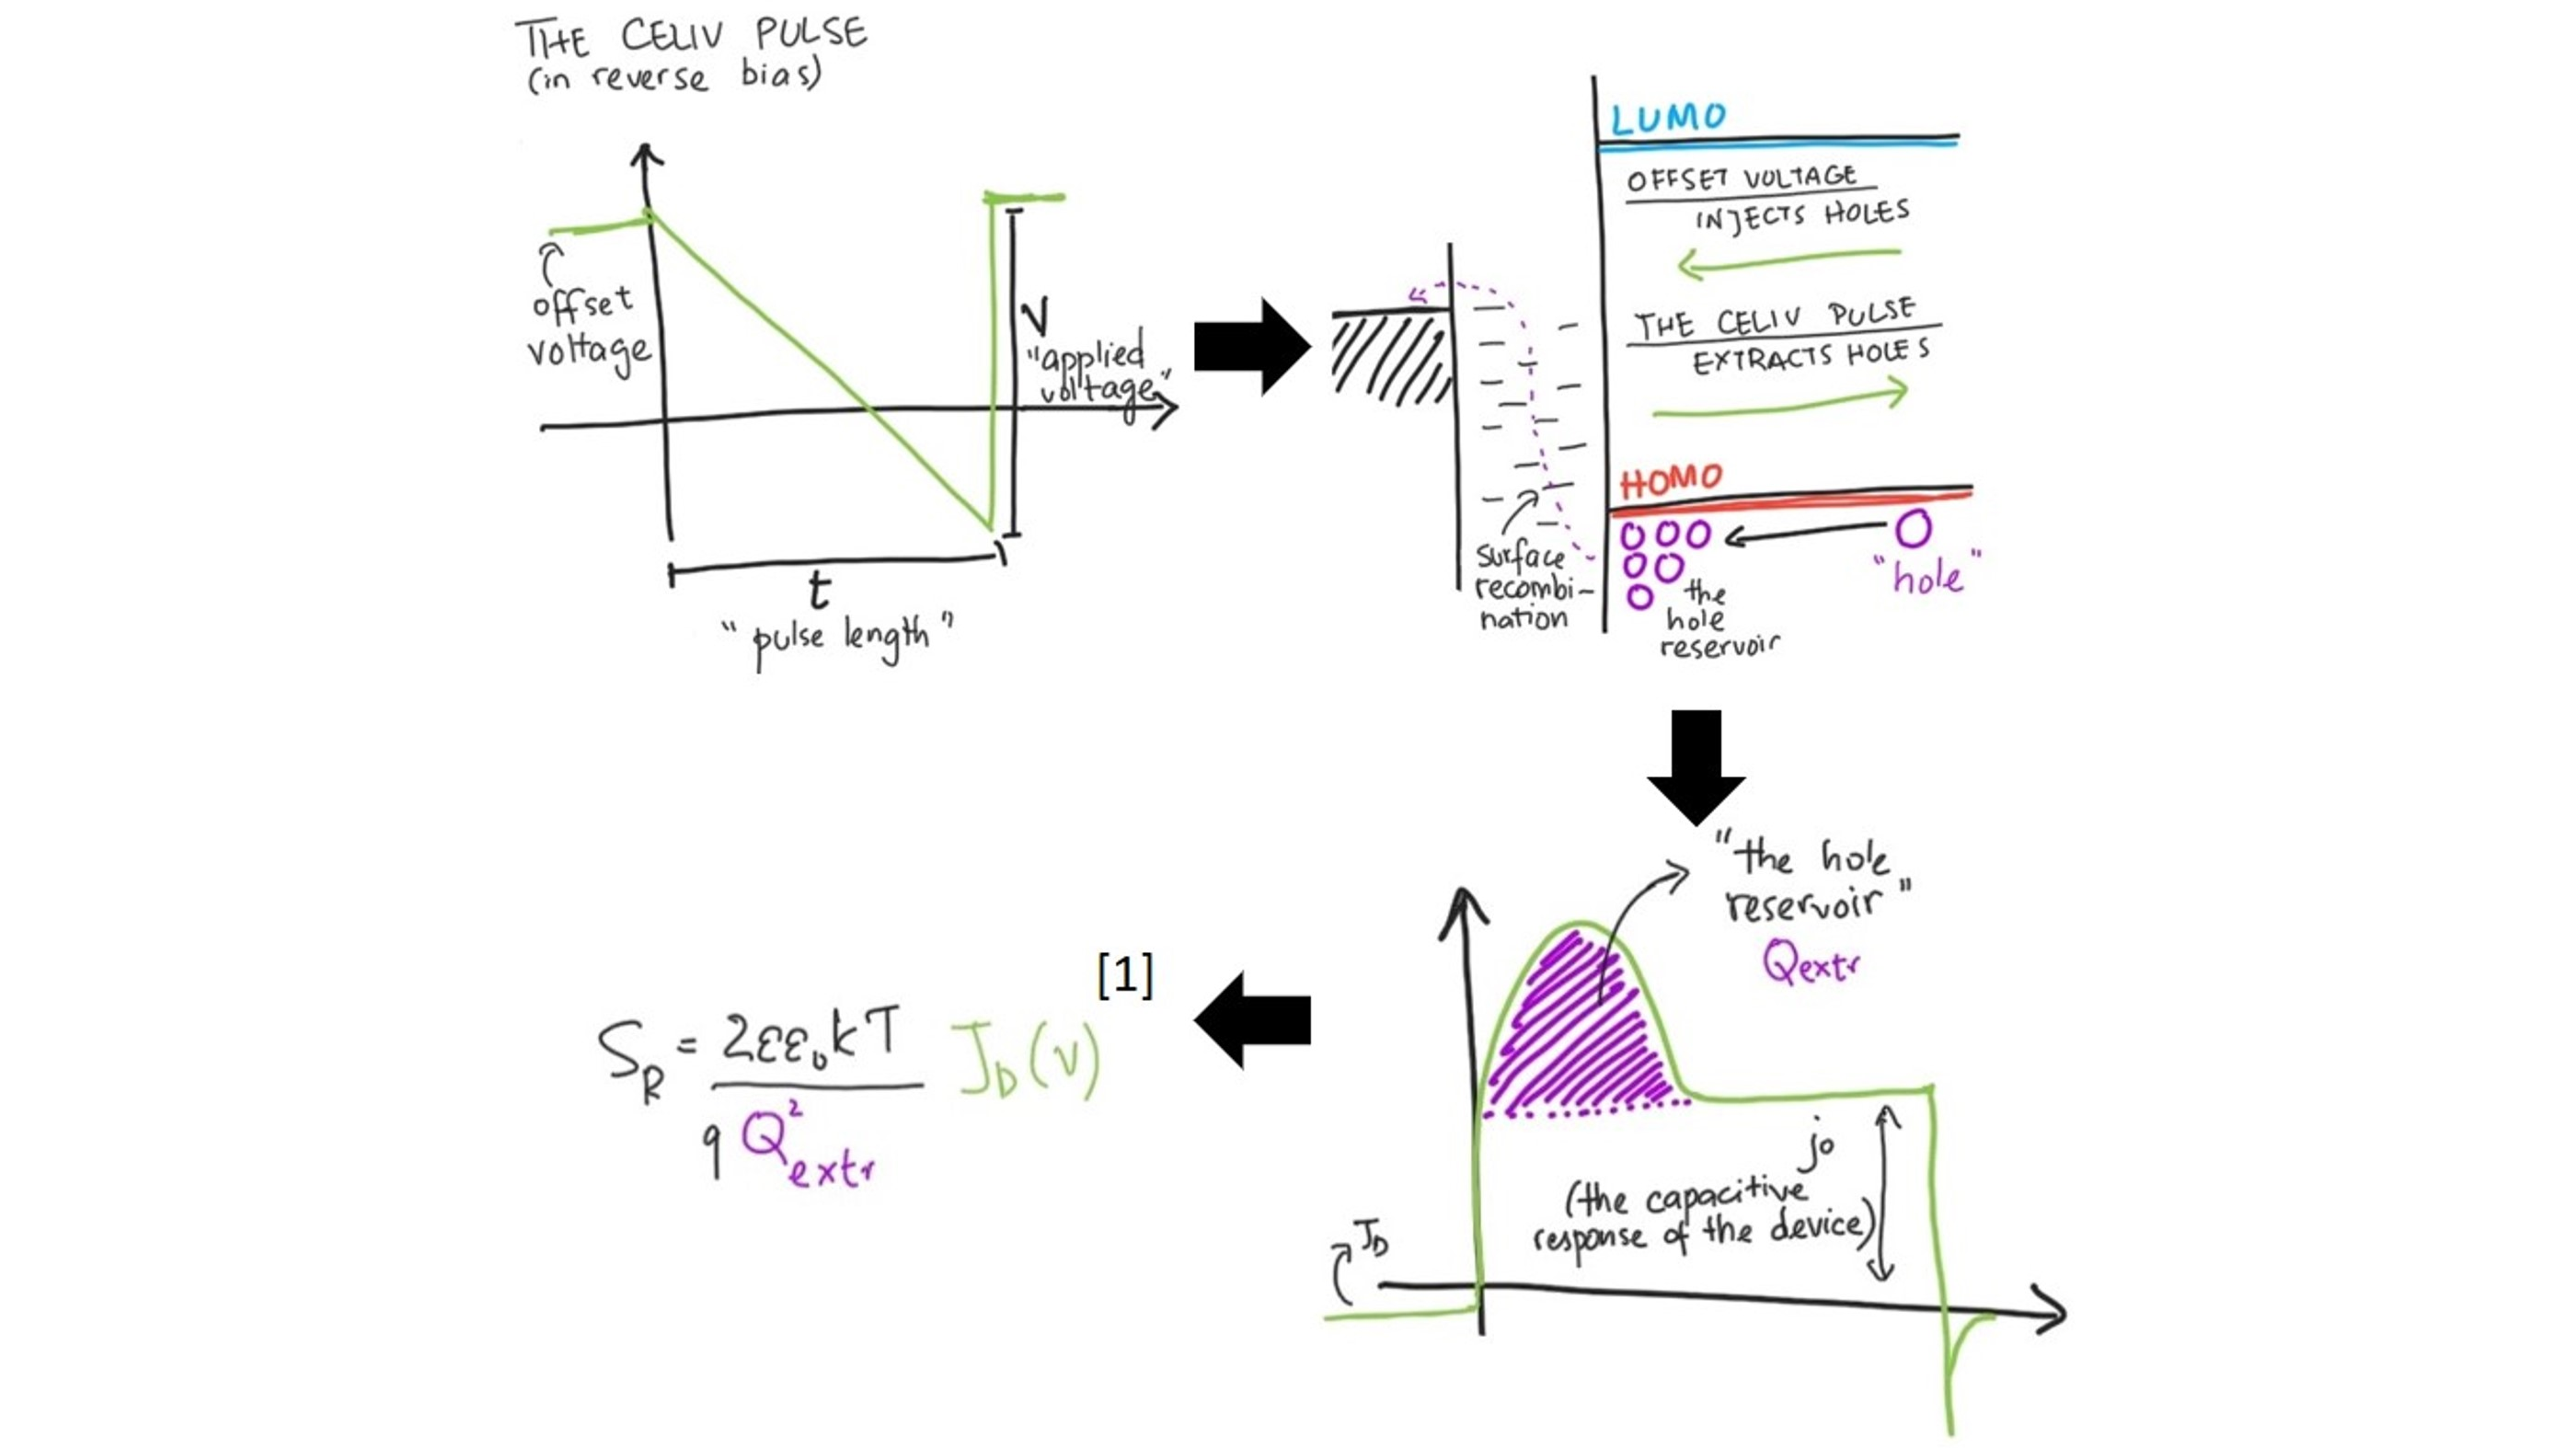 THE CELIV PULSE
(in reverse bias)
offset
voltage
V
"applied
voltage"
t
"pulse length"
LUMO
OFFSET VOLTAGE
INJECTS HOLES
THE CELIV PULSE
EXTRACTS HOLES
HOMO
"hole"
the
hole
reservoir
surface
recombi-
nation
"the hole
reservoir"
Qextr
jo
(the capacitive
response of the device)
JD
[1]
SR = 2εε₀kT JD(V)
q Q²extr